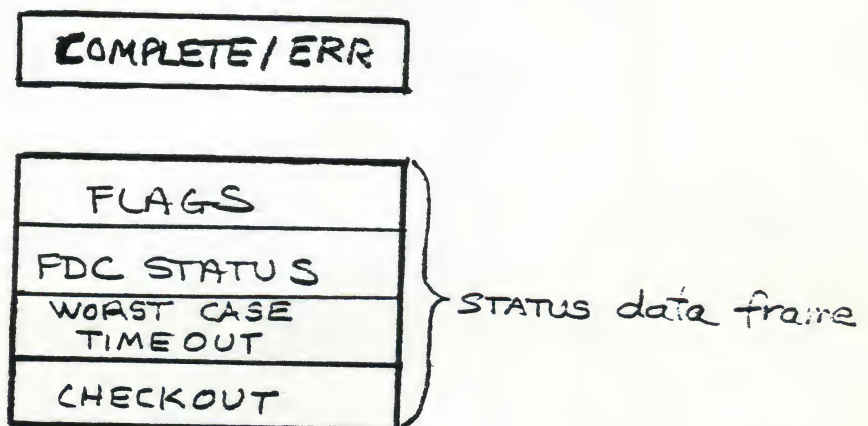 COMPLETE/ERR
FLAGS
FDC STATUS
WORST CASE
TIMEOUT
CHECKOUT
STATUS data frame